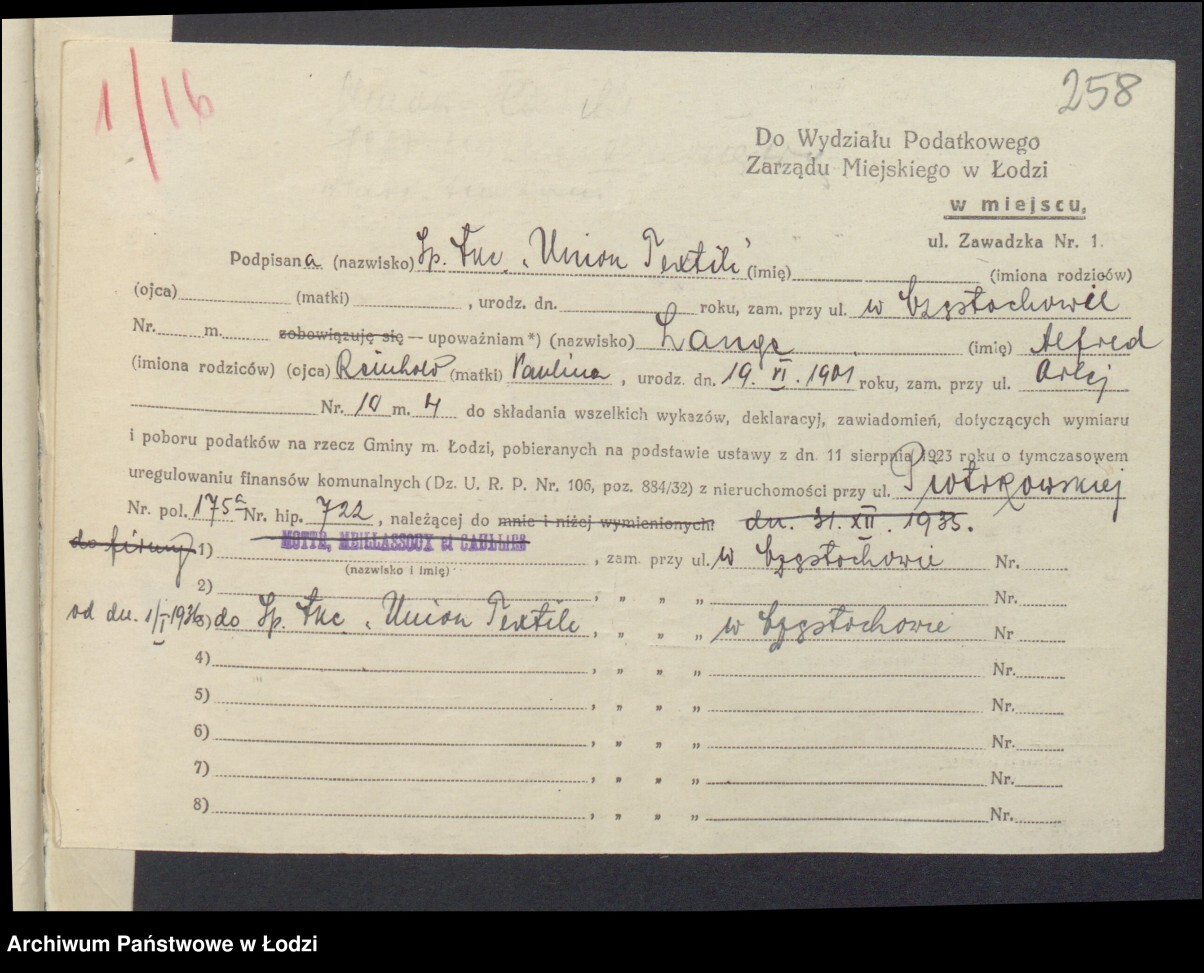 1/16
258
Do Wydziału Podatkowego
Zarządu Miejskiego w Łodzi
w miejscu,
ul. Zawadzka Nr. 1.
Podpisana (nazwisko) Sp. Akc. „Union Textile" (imię) (imiona rodziców)
(ojca) (matki) , urodz. dn. roku, zam. przy ul. w Częstochowie
Nr. m. zobowiązuję się — upoważniam *) (nazwisko) Lange (imię) Alfred
(imiona rodziców) (ojca) Reinhold (matki) Paulina , urodz. dn. 19. VI. 1901 roku, zam. przy ul. Orlej
Nr. 10 m. 4 do składania wszelkich wykazów, deklaracyj, zawiadomień, dotyczących wymiaru
i poboru podatków na rzecz Gminy m. Łodzi, pobieranych na podstawie ustawy z dn. 11 sierpnia 1923 roku o tymczasowem
uregulowaniu finansów komunalnych (Dz. U. R. P. Nr. 106, poz. 884/32) z nieruchomości przy ul. Piotrkowskiej
Nr. pol. 175a Nr. hip. 722 , należącej do mnie i niżej wymienionych: dn. 31. XII. 1935.
do firmy 1) MOTTE, MEILLASSOUX et CAULLIEZ , zam. przy ul. w Częstochowie Nr.
(nazwisko i imię)
2) , „ „ „ Nr.
od dn. 1/I 1936 3) do Sp. Akc. „Union Textile , „ „ „ w Częstochowie Nr
4) , „ „ „ Nr.
5) , „ „ „ Nr.
6) , „ „ „ Nr.
7) , „ „ „ Nr.
8) , „ „ „ Nr.
Archiwum Państwowe w Łodzi